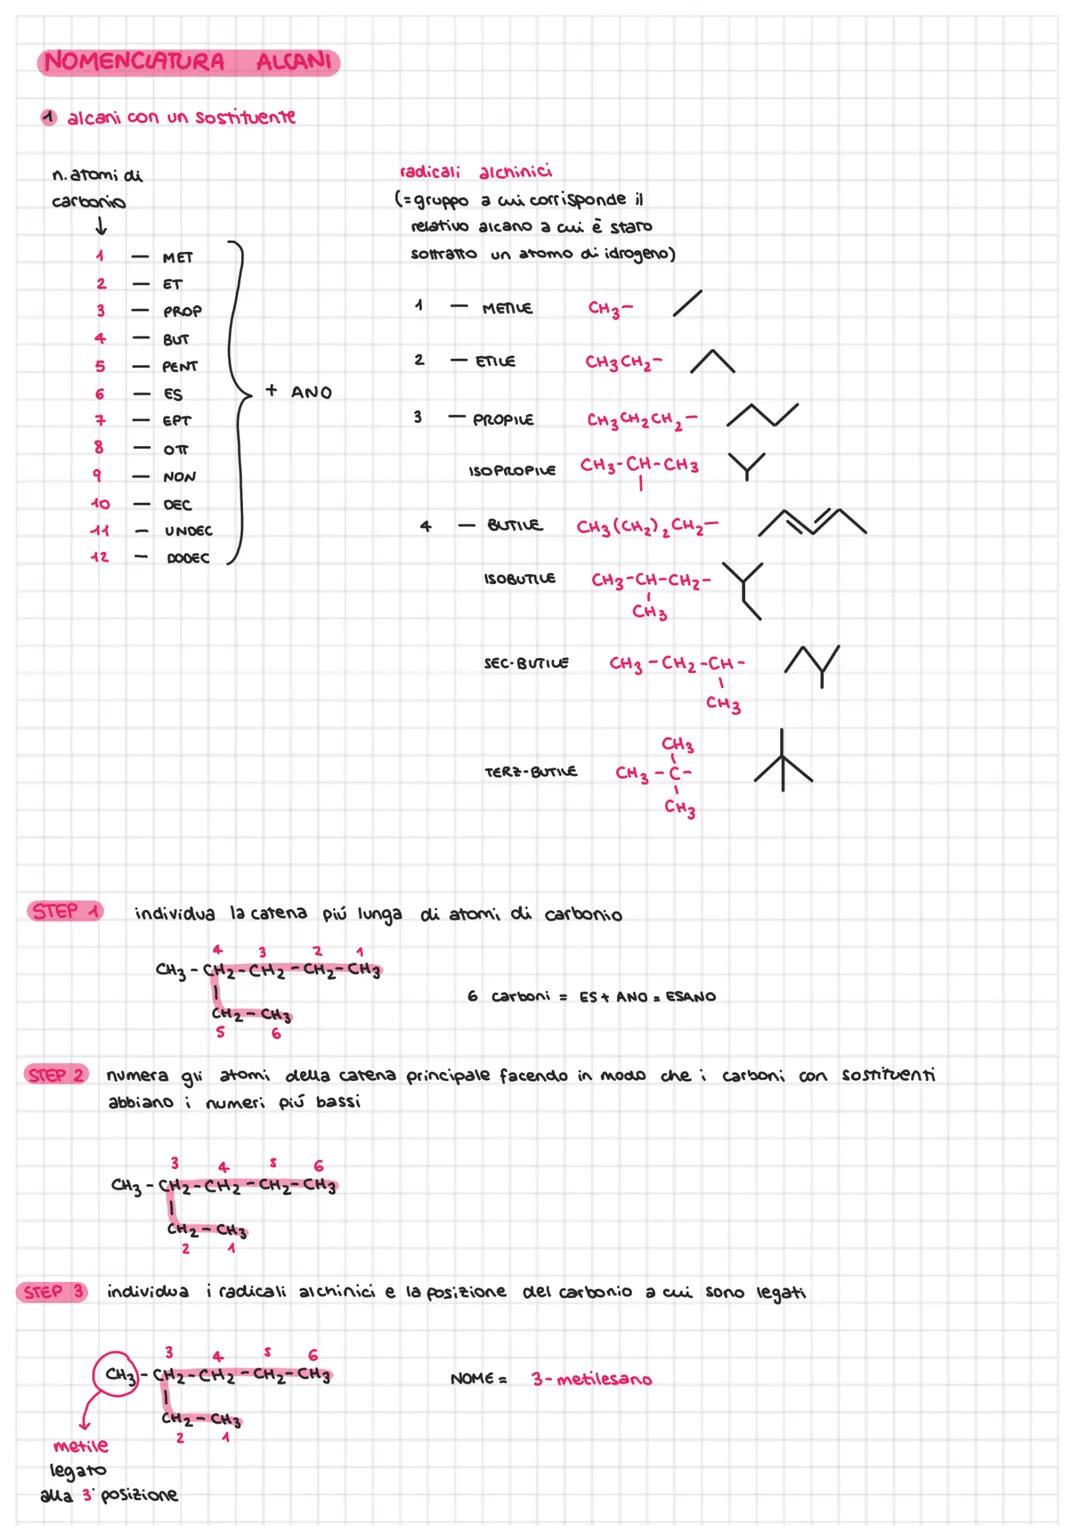 NOMENCLATURA ALCANI
1 alcani con un sostituente
n. atomi di
carbonio
↓
1 — MET
2 — ET
3 — PROP
4 — BUT
5 — PENT
6 — ES
7 — EPT
8 — OTT
9 — NON
10 — DEC
11 — UNDEC
12 — DODEC
+ ANO
radicali alchinici
(=gruppo a cui corrisponde il
relativo alcano a cui è staro
sottratto un atomo di idrogeno)
1 — METILE CH3-
2 — ETILE CH3CH2-
3 — PROPILE CH3CH2CH2-
ISOPROPILE CH3-CH-CH3
4 — BUTILE CH3(CH2)2CH2-
ISOBUTILE CH3-CH-CH2-
CH3
SEC-BUTILE CH3-CH2-CH-
CH3
CH3
TERZ-BUTILE CH3-C-
CH3
STEP 1 individua la catena piú lunga di atomi di carbonio
4 3 2 1
CH3-CH2-CH2-CH2-CH3
6 carboni = ES+ ANO = ESANO
CH2-CH3
5 6
STEP 2 numera gli atomi della catena principale facendo in modo che i carboni con sostituenti
abbiano i numeri piú bassi
3 4 5 6
CH3-CH2-CH2-CH2-CH3
CH2-CH3
2 1
STEP 3 individua i radicali alchinici e la posizione del carbonio a cui sono legati
3 4 5 6
CH3-CH2-CH2-CH2-CH3 NOME = 3-metilesano
CH2-CH3
2 1
metile
legato
alla 3° posizione